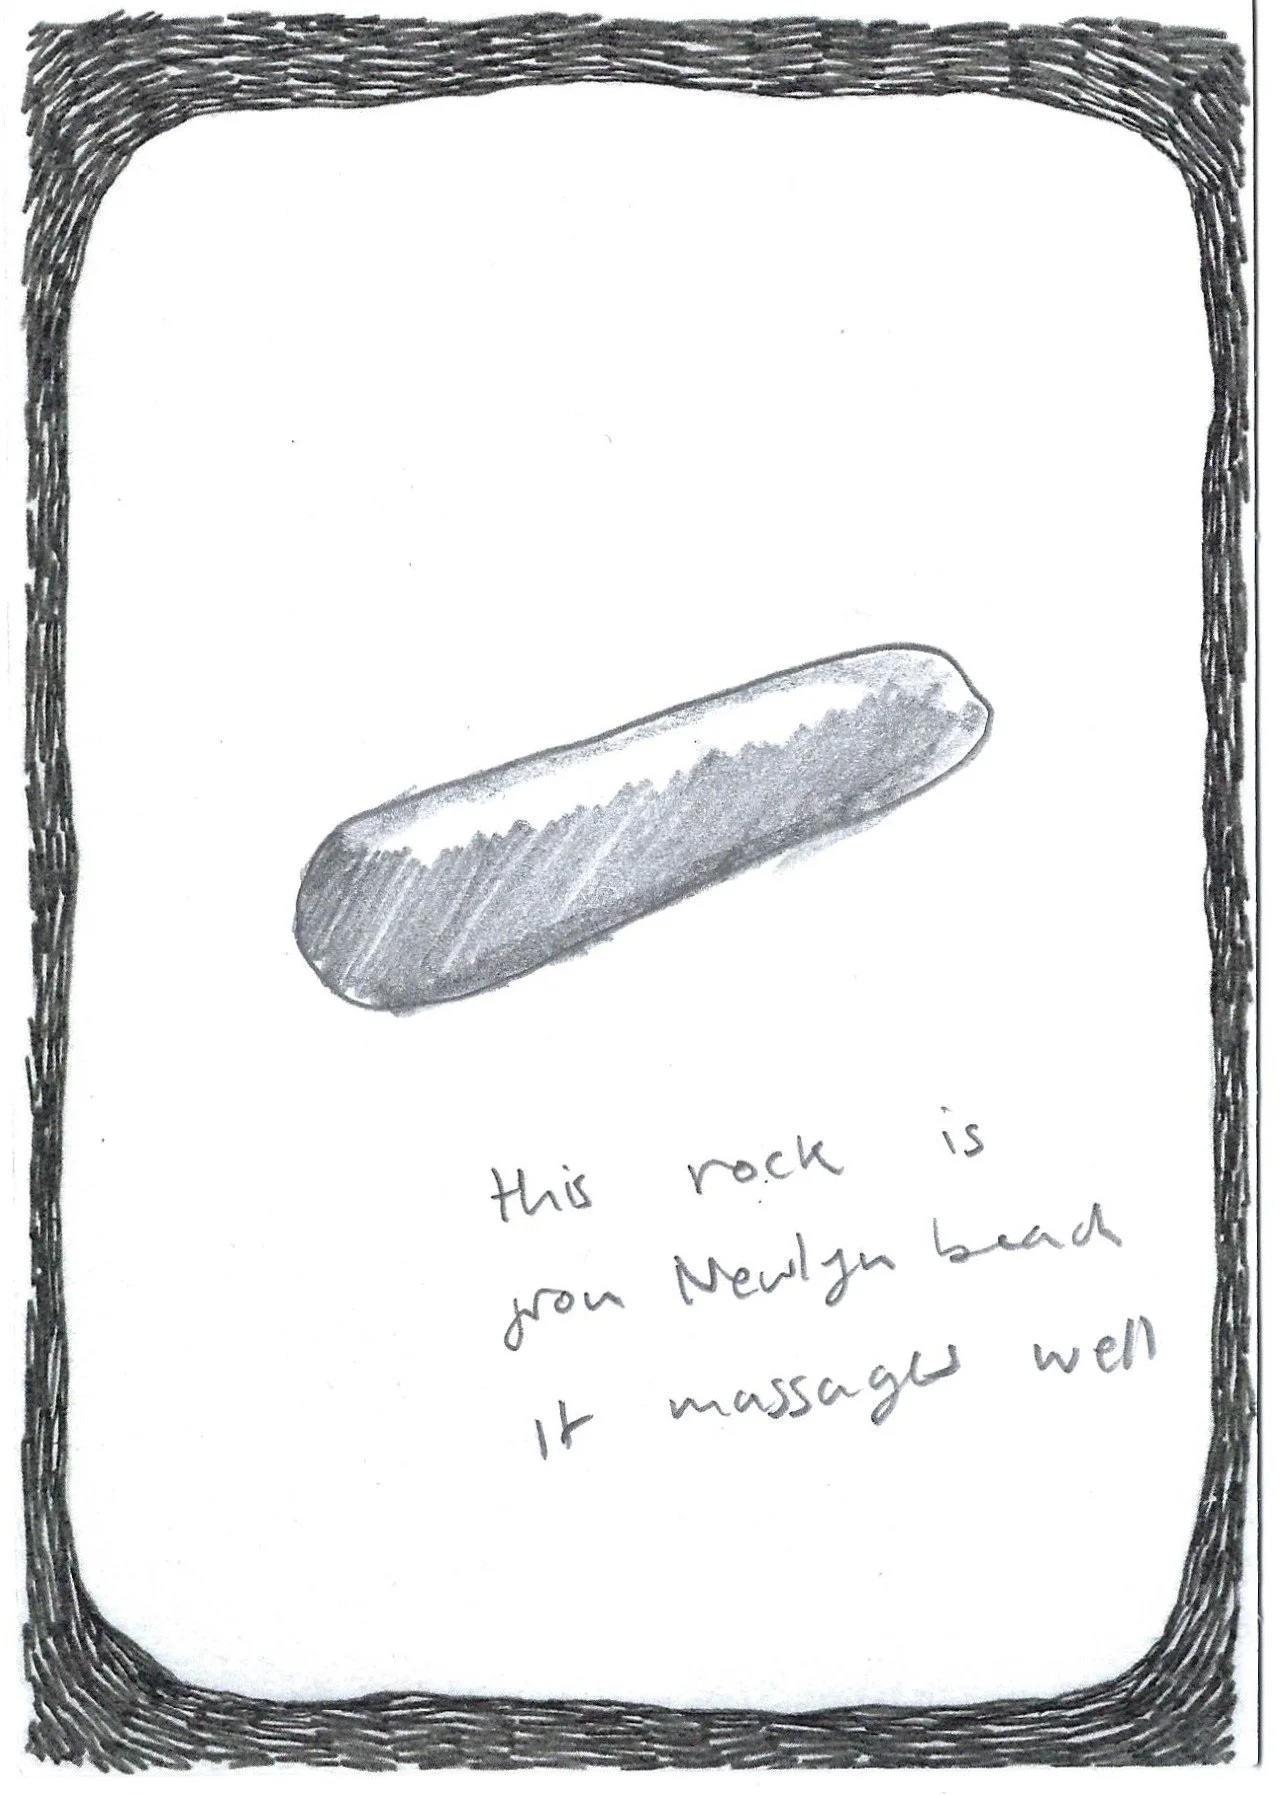 this rock is
from Newlyn beach
it massages well